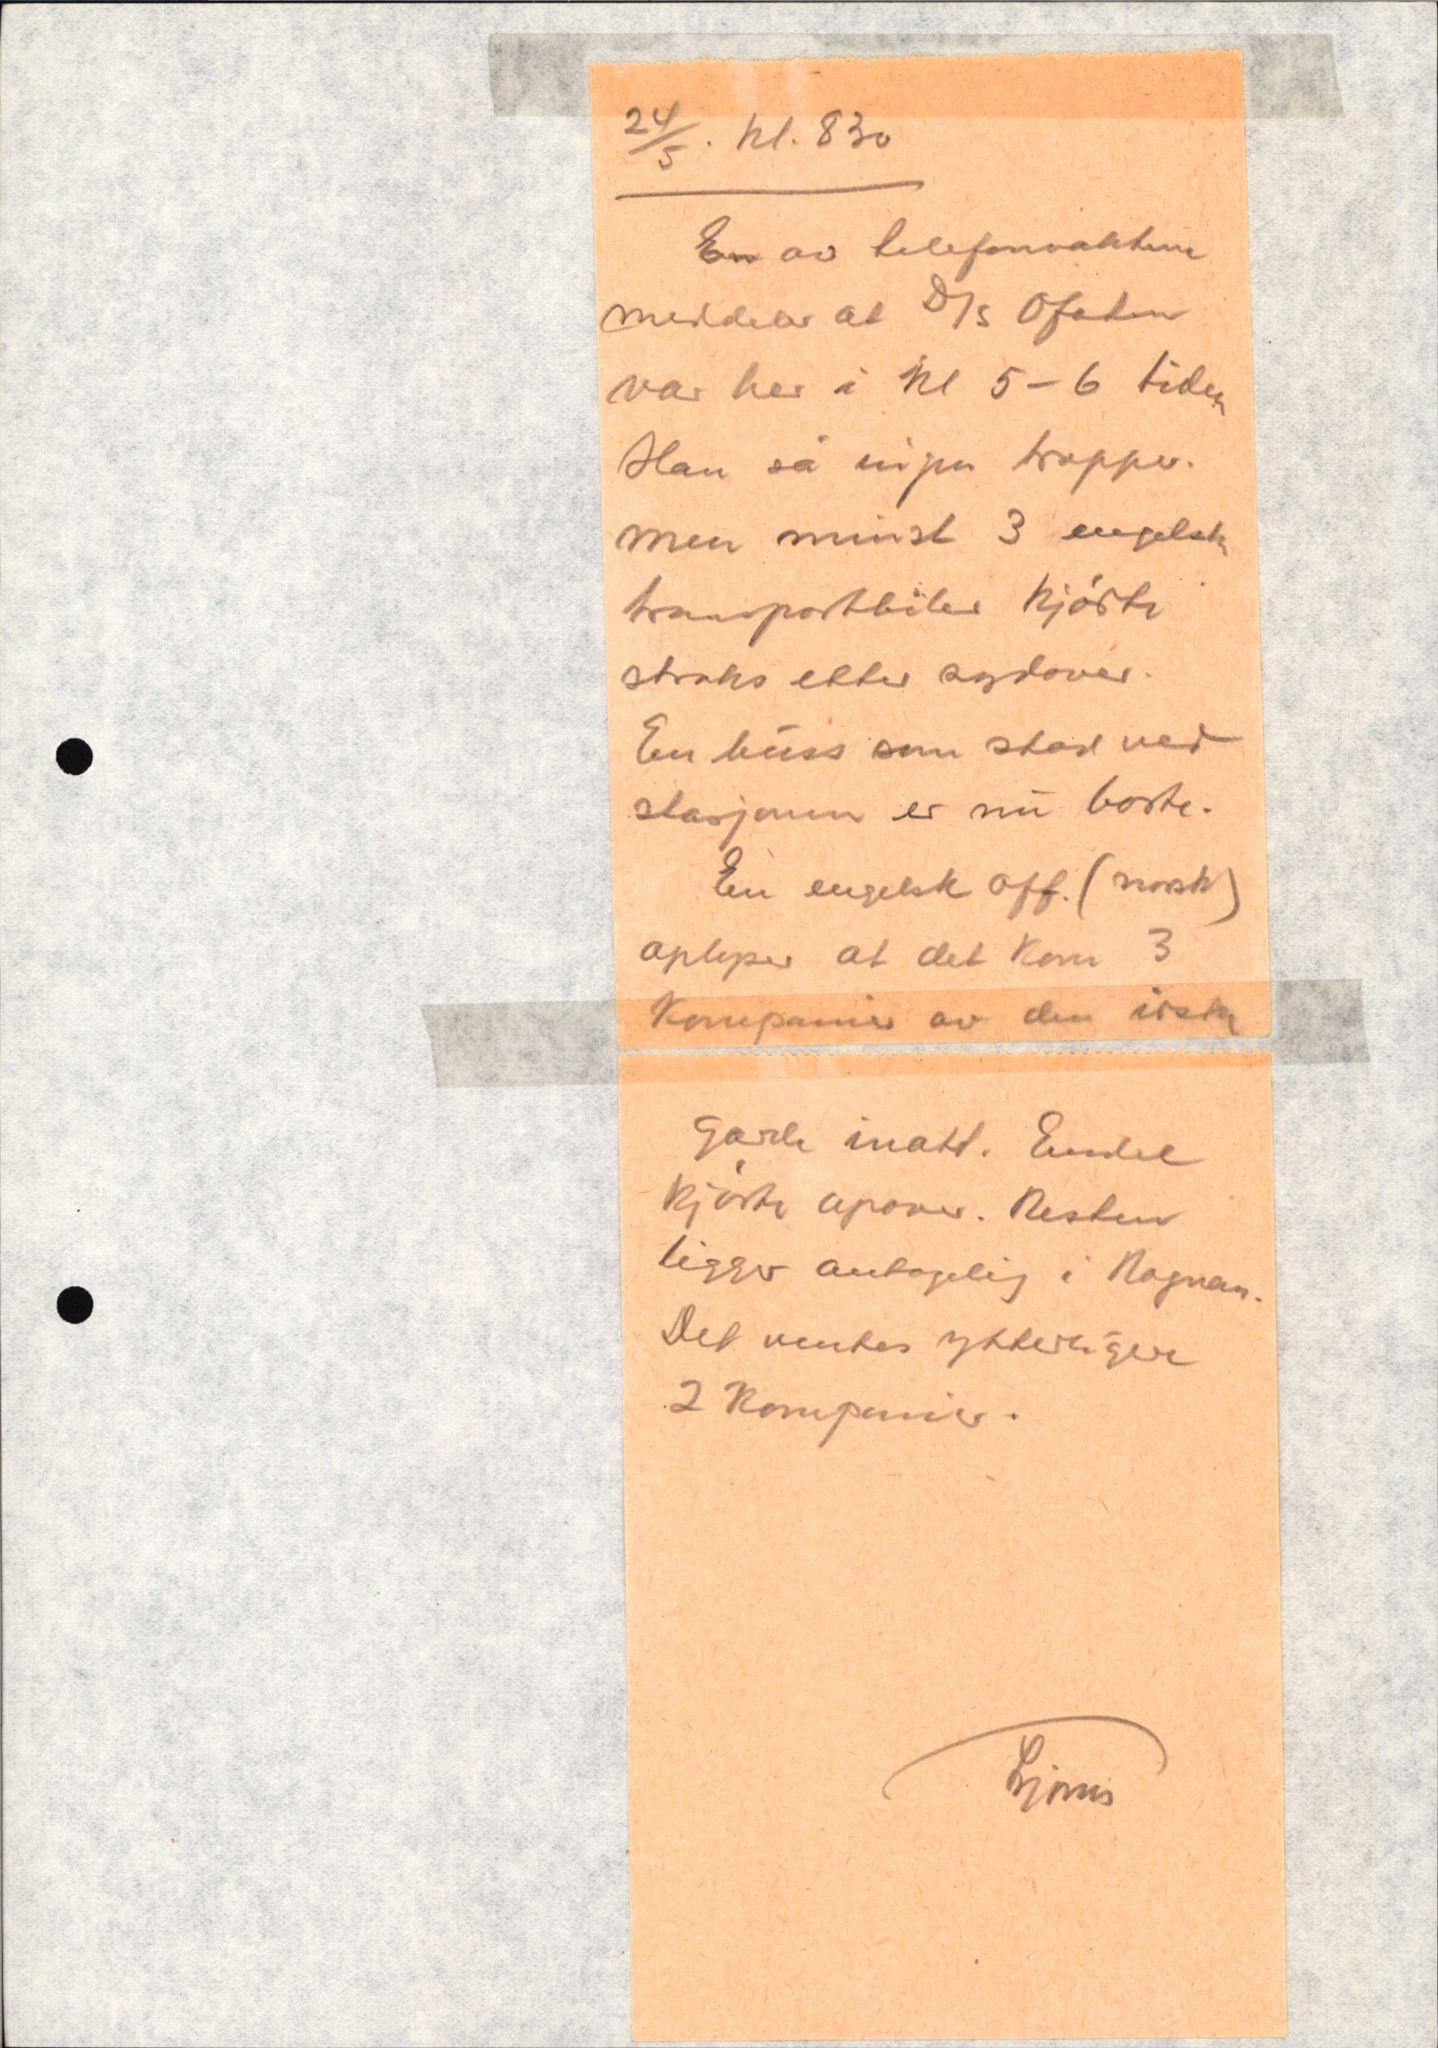 24/5. Kl. 830
En av telefonvaktene
meddeler at D/s Ofoten
var her i kl 5-6 tiden
Han så ingen tropper.
men minst 3 engelske
transportbiler kjörte
straks etter sydover.
En buss som stod ved
stasjonen er nu borte.
En engelsk off. (norsk)
oplyser at det kom 3
Kompanier av den irske
garde inatt. Endel
kjörte opover. Resten
ligger antagelig i Rognan.
Det ventes ytterligere
2 Kompanier.